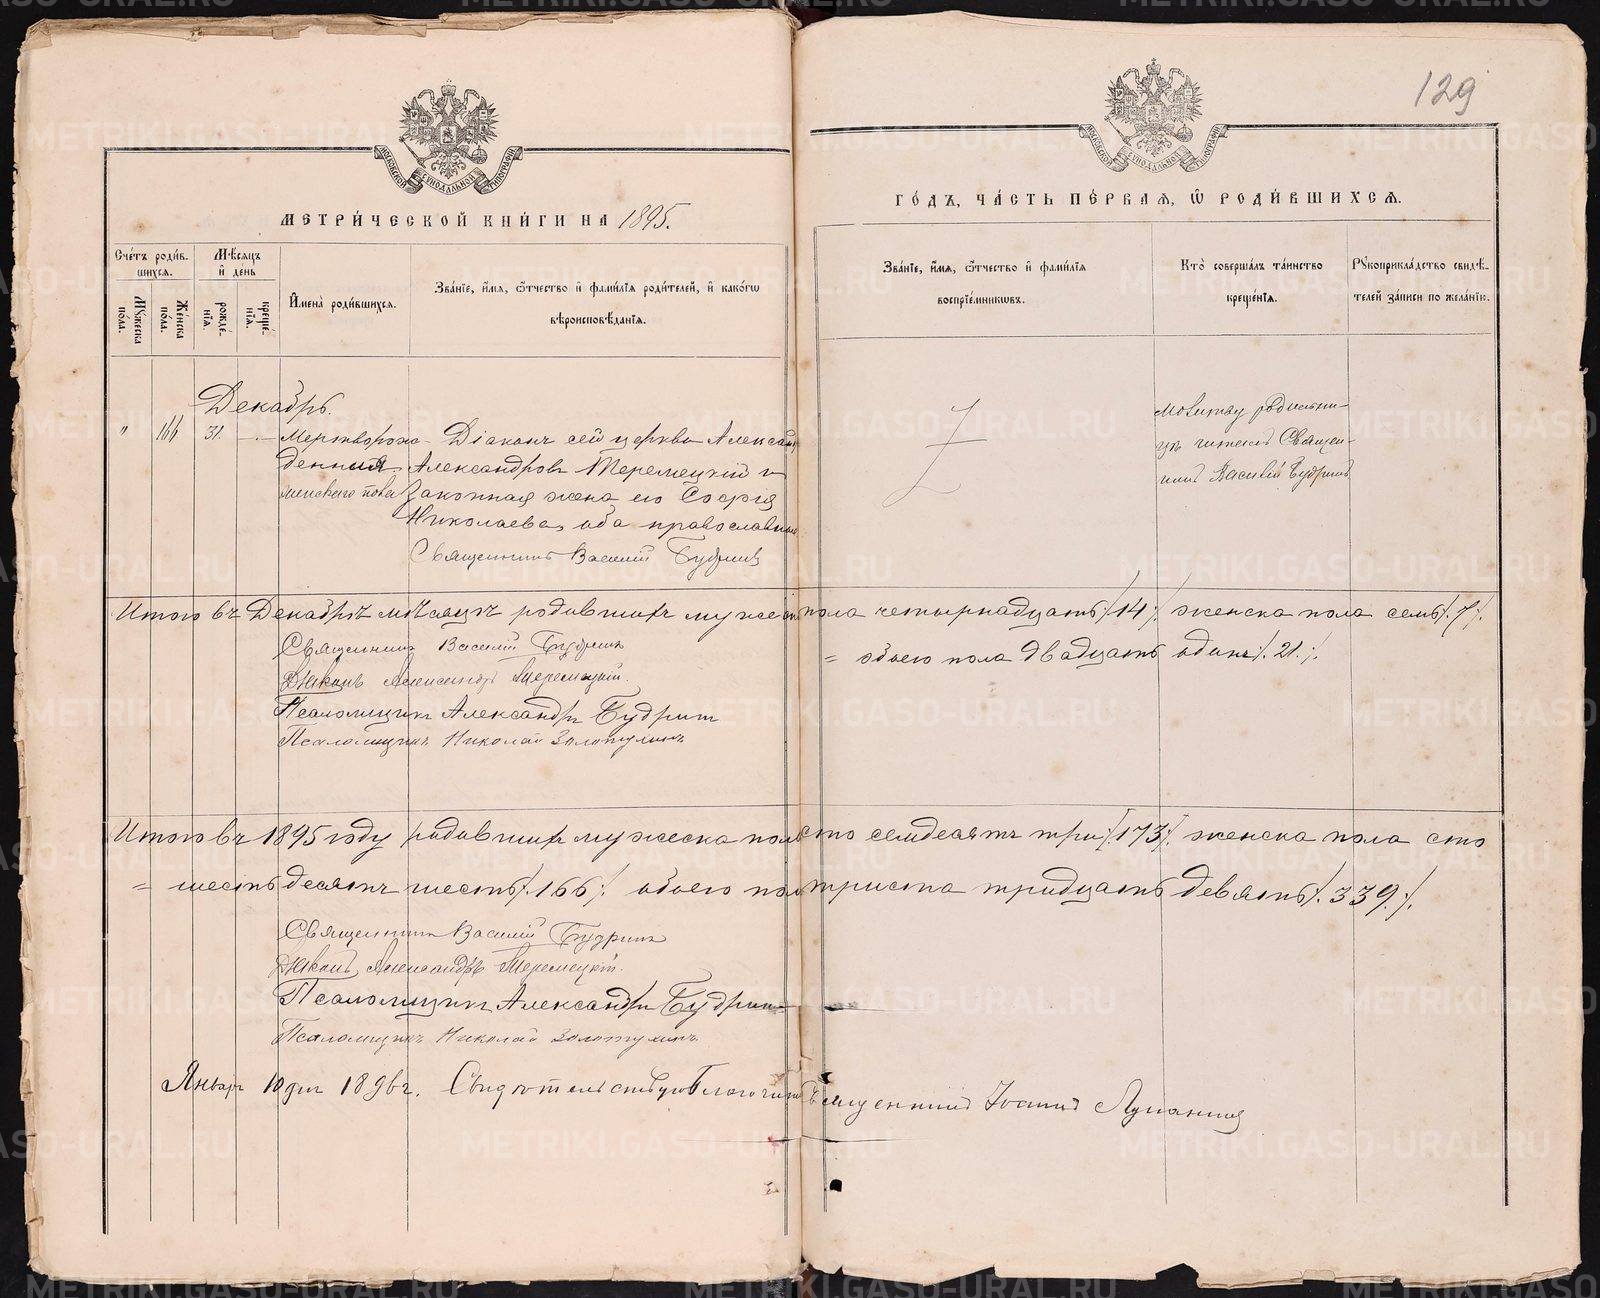 129
МОСКОВСКОЙ СѴНОДАЛЬНОЙ ТИПОГРАФІИ
МОСКОВСКОЙ СѴНОДАЛЬНОЙ ТИПОГРАФІИ
МЕТРИ́ЧЕСКОЙ КНИ́ГИ НА 1895.
ГО́ДЪ, ЧА́СТЬ ПЕ́РВАЯ, Ѡ҆ РОДИ́ВШИХСЯ.
Сче́тъ роди́в-
шихся.
Му́жеска
по́ла.
Же́нска
по́ла.
Мѣ́сяцъ
и҆ де́нь
рожде́-
нїя.
креще́-
нїя.
И҆мена̀ роди́вшихся.
Зва́нїе, и҆́мя, ѻ҆́тчество и҆ фами́лїя роди́телей, и҆ како́гѡ
вѣроисповѣ́данїя.
Зва́нїе, и҆́мя, ѻ҆́тчество и҆ фами́лїя
воспрїе́мникѡвъ.
Кто̀ соверша́лъ та́инство
креще́нїя.
Рꙋкоприкла́дство свидѣ́-
телей за́писи по жела́нїю.
Декабрь.
" 166 31. -.- Мертворож- Діаконъ сей церкви Александръ
денный Александровъ Теремецкій и
женскаго пола законная жена его Софія
Николаева, оба православные
Священникъ Василій Будринъ
молитву родильни-
цѣ читалъ Священ-
никъ Василій Будринъ
Итого въ Декабрѣ мѣсяцѣ родившихъ мужеска пола четырнадцать /.14./. женска пола семь /.7./.
= обоего пола двадцать одинъ /.21./.
Священникъ Василій Будринъ
Діаконъ Александръ Теремецкій.
Псаломщикъ Александръ Будринъ
Псаломщикъ Николай Золотухинъ
Итого въ 1895 году родившихъ мужеска пола сто семдесятъ три /.173./. женска пола сто
= шестьдесятъ шесть /.166./. обоего пола триста тридцать девять /.339./.
Священникъ Василій Будринъ
Діаконъ Александръ Теремецкій.
Псаломщикъ Александръ Будринъ
Псаломщикъ Николай Золотухинъ.
Январь 10 дня 1896 г. Свидѣтельствую Благочинный Священникъ Іоаннъ
METRIKI.GASO-URAL.RU